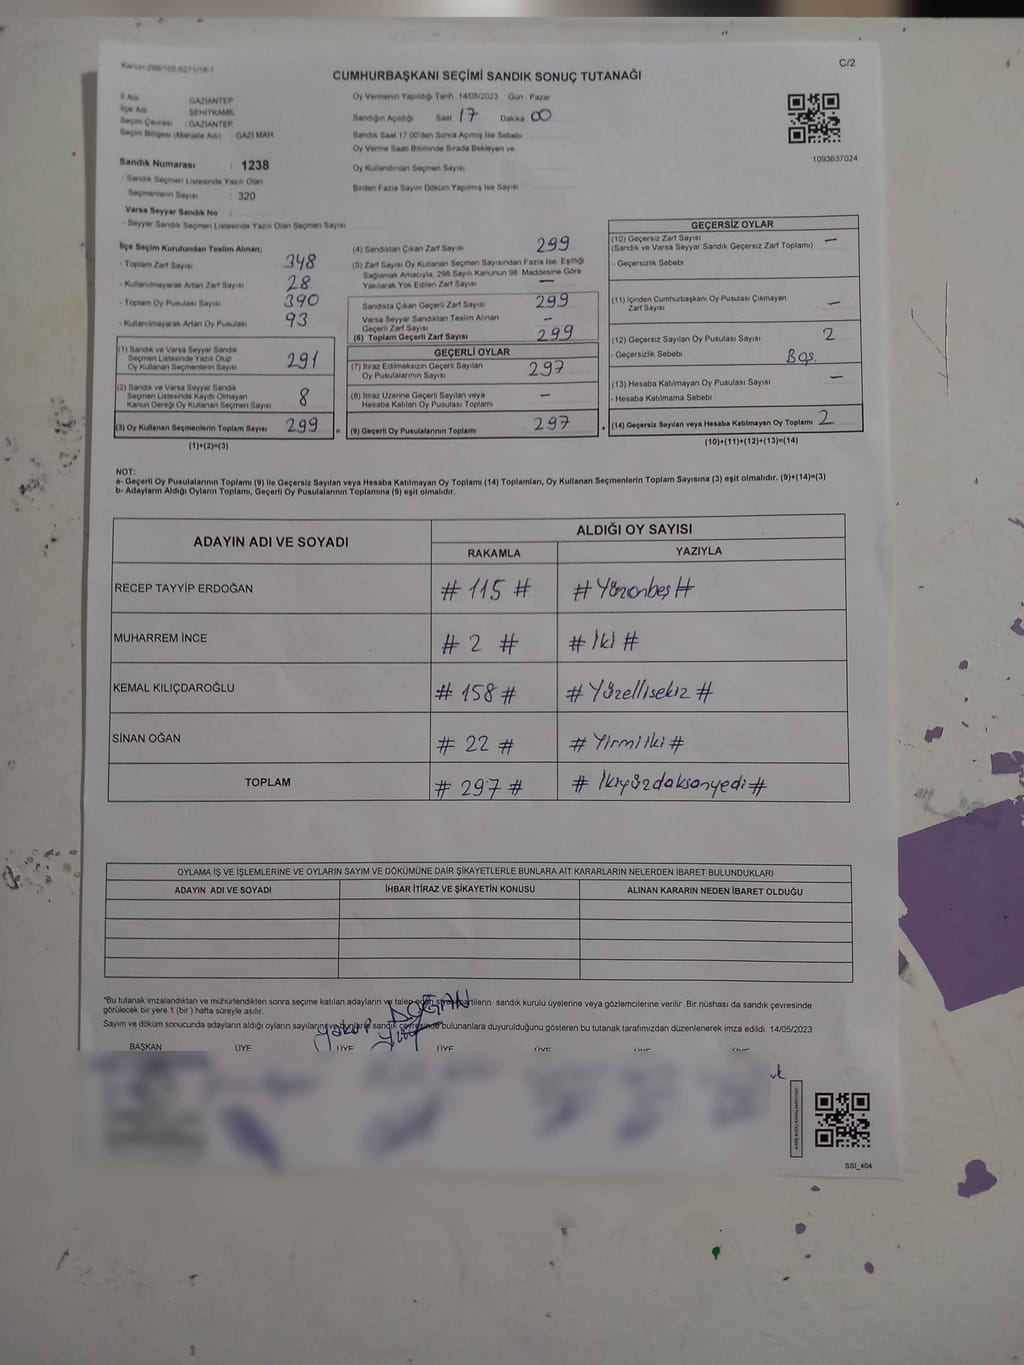 C/2
CUMHURBAŞKANI SEÇİMİ SANDIK SONUÇ TUTANAĞI
İl Adı : GAZİANTEP
İlçe Adı : ŞEHİTKAMİL
Seçim Çevresi : GAZİANTEP
Seçim Bölgesi (Mahalle Adı) : GAZİ MAH
Sandık Numarası : 1238
- Sandık Seçmen Listesinde Yazılı Olan
Seçmenlerin Sayısı : 320
Varsa Seyyar Sandık No :
- Seyyar Sandık Seçmen Listesinde Yazılı Olan Seçmen Sayısı
Oy Vermenin Yapıldığı Tarih 14/05/2023 Gün Pazar
Sandığın Açıldığı Saat 17 Dakika 00
Sandık Saat 17.00'den Sonra Açılmış İse Sebebi
Oy Verme Saati Bitiminde Sırada Bekleyen ve
Oy Kullandırılan Seçmen Sayısı
Birden Fazla Sayım Döküm Yapılmış İse Sayısı
1093637024
İlçe Seçim Kurulundan Teslim Alınan;
- Toplam Zarf Sayısı 348
- Kullanılmayarak Artan Zarf Sayısı 28
- Toplam Oy Pusulası Sayısı 390
- Kullanılmayarak Artan Oy Pusulası 93
(1) Sandık ve Varsa Seyyar Sandık
Seçmen Listesinde Yazılı Olup
Oy Kullanan Seçmenlerin Sayısı 291
(2) Sandık ve Varsa Seyyar Sandık
Seçmen Listesinde Kayıtlı Olmayan
Kanun Gereği Oy Kullanan Seçmen Sayısı 8
(3) Oy Kullanan Seçmenlerin Toplam Sayısı 299 =
(1)+(2)=(3)
(4) Sandıktan Çıkan Zarf Sayısı 299
(5) Zarf Sayısı Oy Kullanan Seçmen Sayısından Fazla İse, Eşitliği
Sağlamak Amacıyla, 298 Sayılı Kanunun 98. Maddesine Göre
Yakılarak Yok Edilen Zarf Sayısı —
Sandıkta Çıkan Geçerli Zarf Sayısı 299
Varsa Seyyar Sandıktan Teslim Alınan
Geçerli Zarf Sayısı –
(6) Toplam Geçerli Zarf Sayısı 299
GEÇERLİ OYLAR
(7) İtiraz Edilmeksizin Geçerli Sayılan
Oy Pusulalarının Sayısı 297
(8) İtiraz Üzerine Geçerli Sayılan veya
Hesaba Katılan Oy Pusulası Toplamı –
(9) Geçerli Oy Pusulalarının Toplamı 297 +
GEÇERSİZ OYLAR
(10) Geçersiz Zarf Sayısı
(Sandık ve Varsa Seyyar Sandık Geçersiz Zarf Toplamı) —
- Geçersizlik Sebebi
(11) İçinden Cumhurbaşkanı Oy Pusulası Çıkmayan
Zarf Sayısı —
(12) Geçersiz Sayılan Oy Pusulası Sayısı 2
- Geçersizlik Sebebi Boş.
(13) Hesaba Katılmayan Oy Pusulası Sayısı —
- Hesaba Katılmama Sebebi
(14) Geçersiz Sayılan veya Hesaba Katılmayan Oy Toplamı 2
(10)+(11)+(12)+(13)=(14)
NOT:
a- Geçerli Oy Pusulalarının Toplamı (9) ile Geçersiz Sayılan veya Hesaba Katılmayan Oy Toplamı (14) Toplamları, Oy Kullanan Seçmenlerin Toplam Sayısına (3) eşit olmalıdır. (9)+(14)=(3)
b- Adayların Aldığı Oyların Toplamı, Geçerli Oy Pusulalarının Toplamına (9) eşit olmalıdır.
ADAYIN ADI VE SOYADI ALDIĞI OY SAYISI
RAKAMLA YAZIYLA
RECEP TAYYİP ERDOĞAN # 115 # # Yüzonbeş #
MUHARREM İNCE # 2 # # İki #
KEMAL KILIÇDAROĞLU # 158 # # Yüzellisekiz #
SİNAN OĞAN # 22 # # Yirmiiki #
TOPLAM # 297 # # İkiyüzdoksanyedi #
OYLAMA İŞ VE İŞLEMLERİNE VE OYLARIN SAYIM VE DÖKÜMÜNE DAİR ŞİKAYETLERLE BUNLARA AİT KARARLARIN NELERDEN İBARET BULUNDUKLARI
ADAYIN ADI VE SOYADI İHBAR İTİRAZ VE ŞİKAYETİN KONUSU ALINAN KARARIN NEDEN İBARET OLDUĞU
*Bu tutanak imzalandıktan ve mühürlendikten sonra seçime katılan adayların ve talep eden siyasi partilerin sandık kurulu üyelerine veya gözlemcilerine verilir. Bir nüshası da sandık çevresinde
görülecek bir yere 1 (bir ) hafta süreyle asılır.
Sayım ve döküm sonucunda adayların aldığı oyların sayıları ve bunların sandık çevresinde bulunanlara duyurulduğunu gösteren bu tutanak tarafımızdan düzenlenerek imza edildi. 14/05/2023
Yakup DOĞAN
BAŞKAN ÜYE ÜYE ÜYE ÜYE ÜYE ÜYE
SSI_404